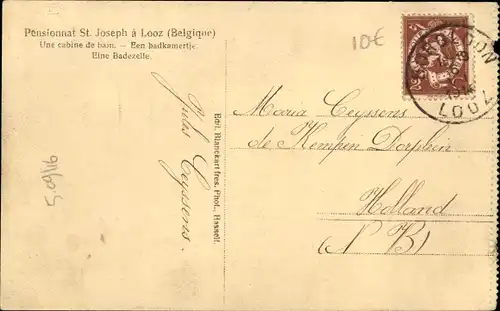 Pensionnat St. Joseph à Looz (Belgique)
Une cabine de bain. — Een badkamertje
Eine Badezelle.
10€
BORGLOON
LOOZ
Maria Ceyssens
de Kempen Dorphein
Holland
(N B)
Jules Ceyssens.
Edit. Blanckart frès, Phot., Hasselt.